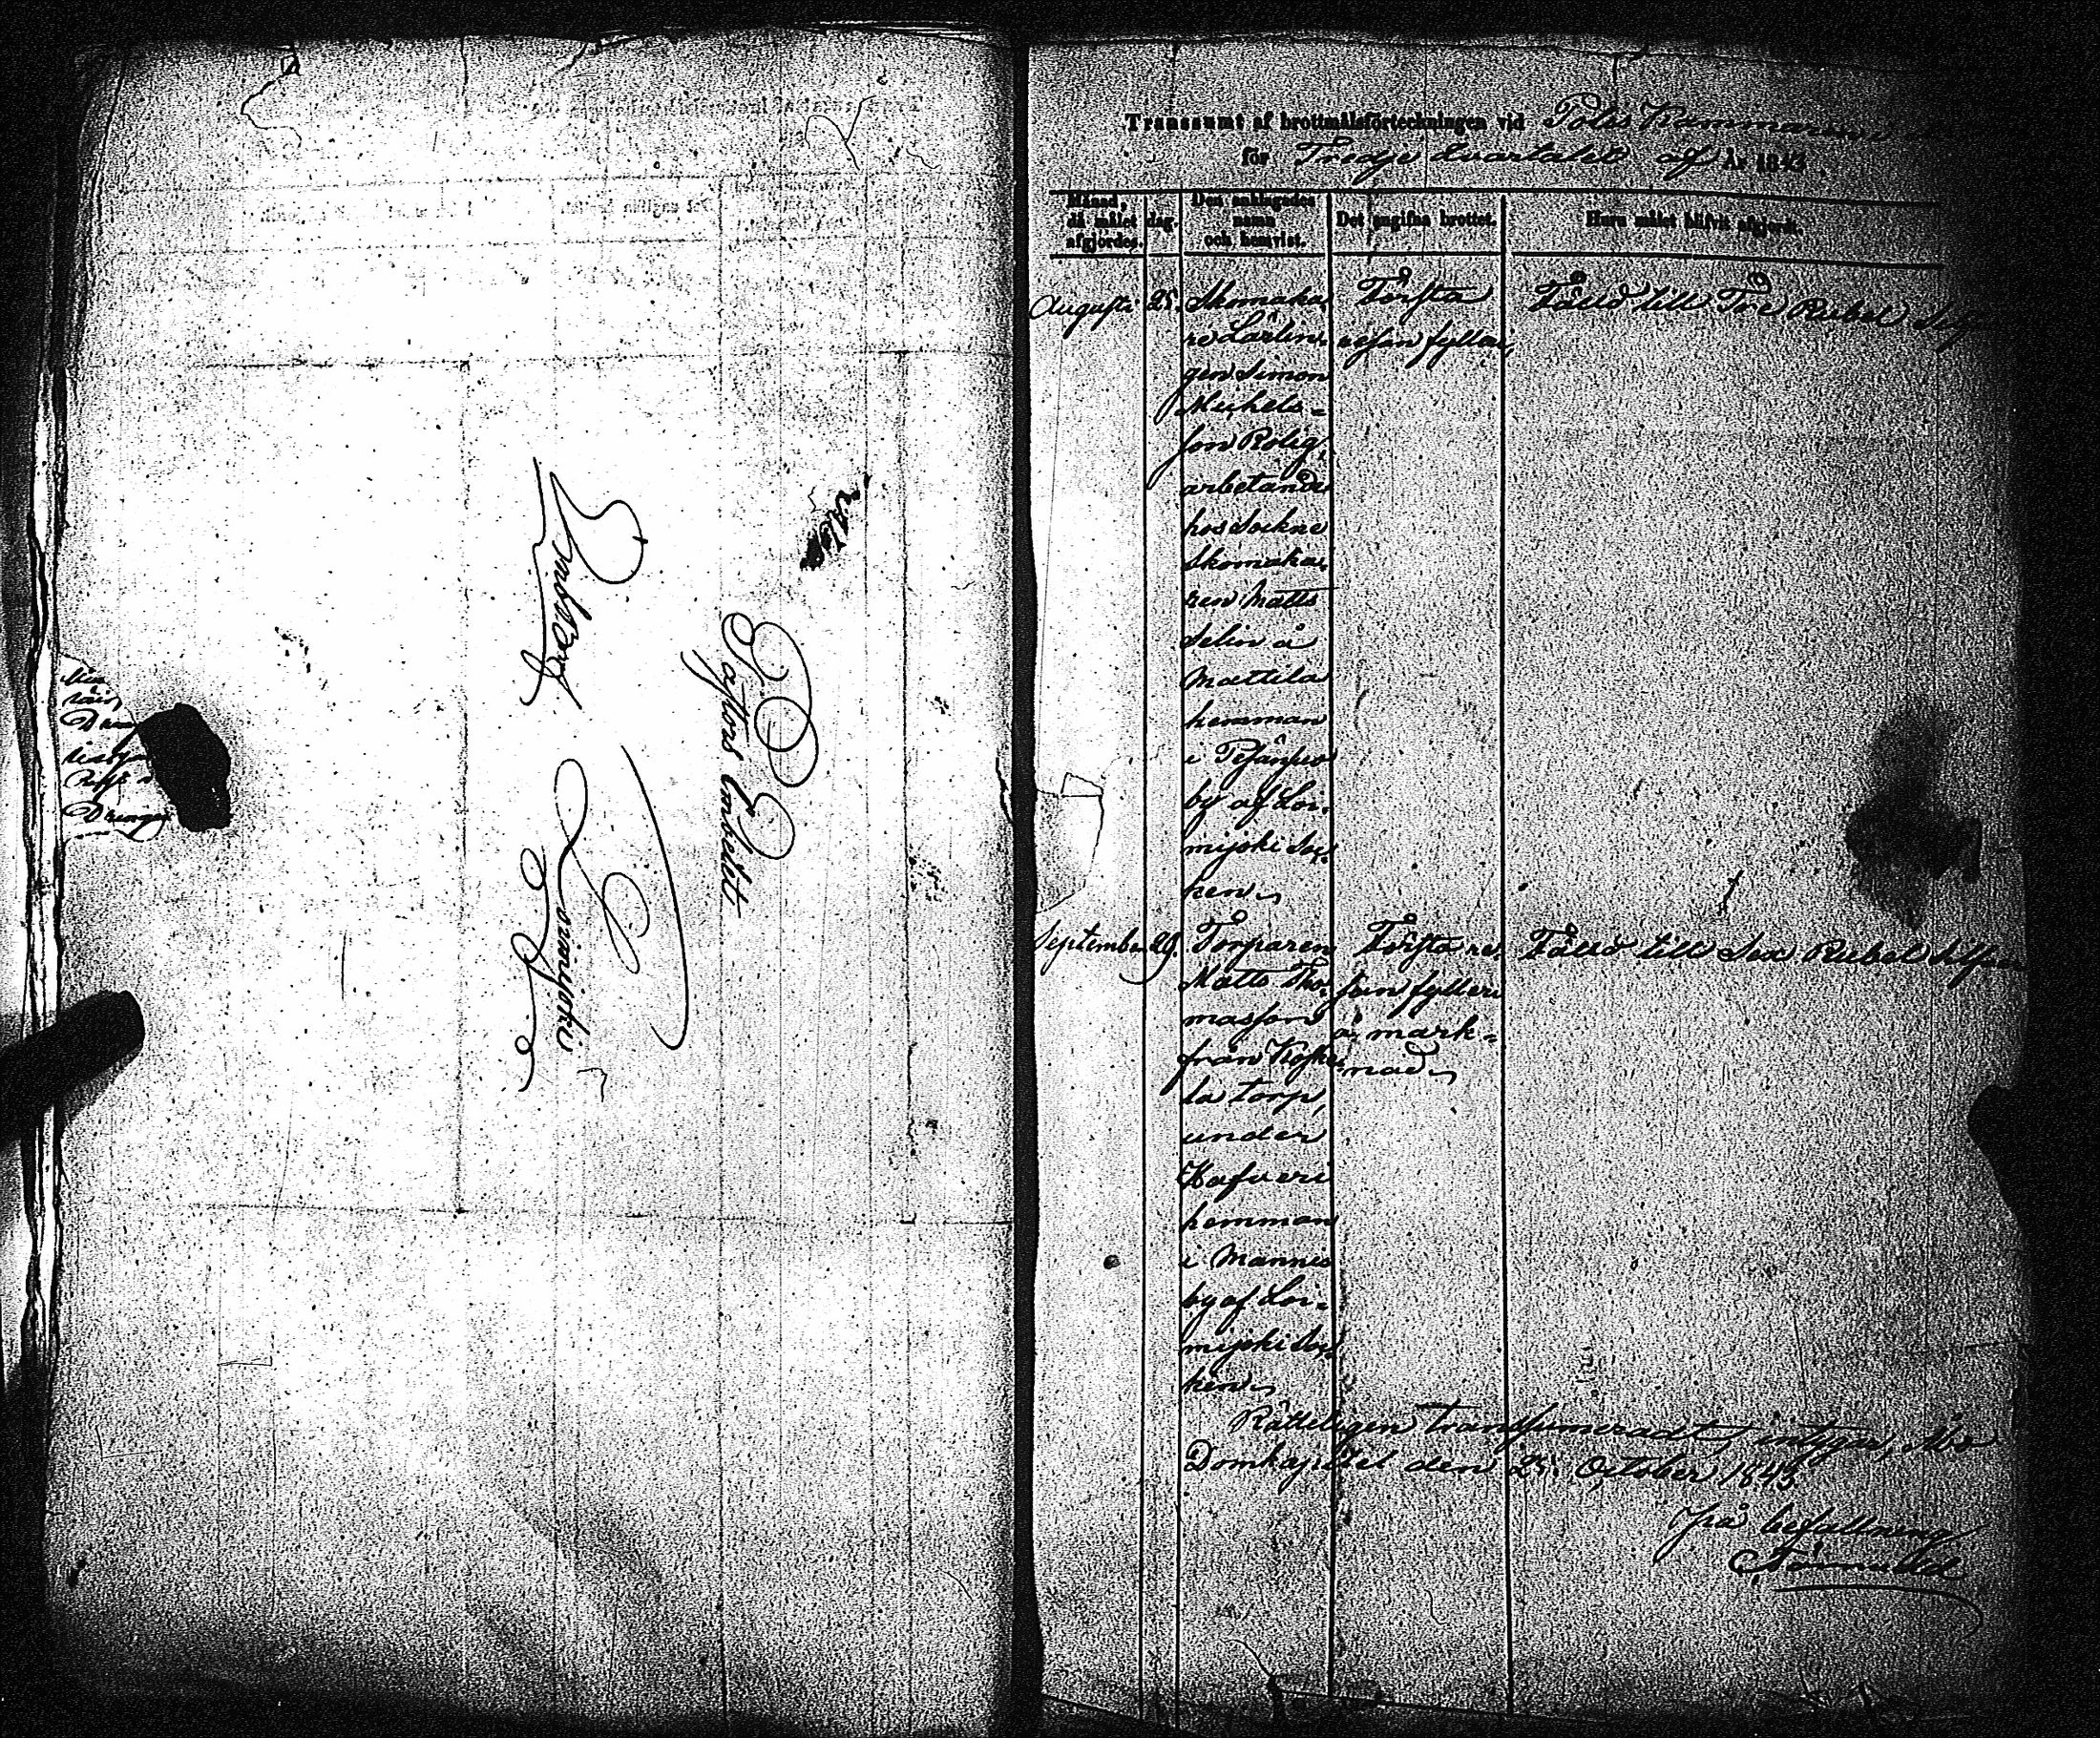 Pastors Embetet
Loimijoki
Transsumt af brottmålsförteckningen vid Polis Kammaren
för Tredje Qvartalet af År 1843
Månad, då målet afgjordes.
dag.
Den anklagades namn och hemvist.
Det angifna brottet.
Huru målet blifvit afgjordt.
Augusti 25.
Skomaka
re Lärlin
gen Simon
Michels-
son Rolig,
arbetande
hos Sockne
Skomaka
ren Matts
Selin å
Mattila
hemman
i Pesänsuo
by af Loi-
mijoki Soc-
ken
Första
resan fylleri
Fälld till Tre Rubel
September 29.
Torparen
Matts Tho-
masson
från Koske-
la torp,
under
hemman
i Mannis
by af Loi-
mijoki Soc-
ken
Första re-
san fylleri
å mark-
nad
Fälld till Sex Rubel Silfver
Rätteligen transsumeradt, intygar, Åbo
Domkapitel den 25. October 1843.
På befallning